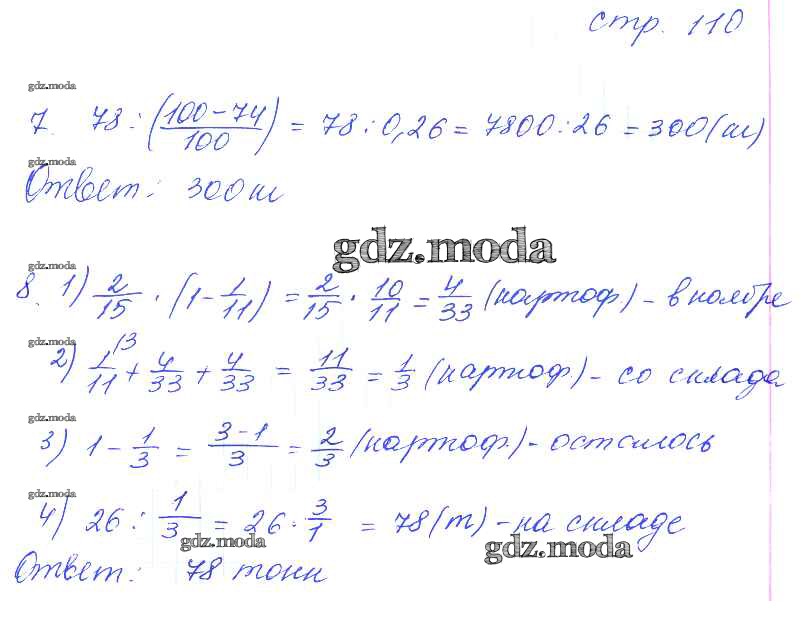 стр. 110
gdz.moda
7. 78 : (100-74/100) = 78 : 0,26 = 7800 : 26 = 300 (ш)
gdz.moda
Ответ: 300 ш
gdz.moda
gdz.moda
8. 1) 2/15 · (1 - 1/11) = 2/15 · 10/11 = 4/33 (картоф.) - в ноябре
gdz.moda
2) 1/11 /3 + 4/33 + 4/33 = 11/33 = 1/3 (картоф.) - со склада
gdz.moda
3) 1 - 1/3 = 3-1/3 = 2/3 (картоф.) - осталось
gdz.moda
4) 26 : 1/3 = 26 · 3/1 = 78 (т) - на складе
gdz.moda
gdz.moda
Ответ: 78 тонн